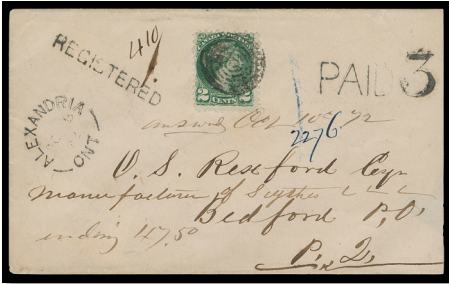 REGISTERED
410
2 CENTS 2
PAID 3
ALEXANDRIA
ONT
answd Oct 10 72
2276
O. S. Rexford Esqr
manufacturer of Scythes
Bedford P.O.
ending 47,50
P. Q.